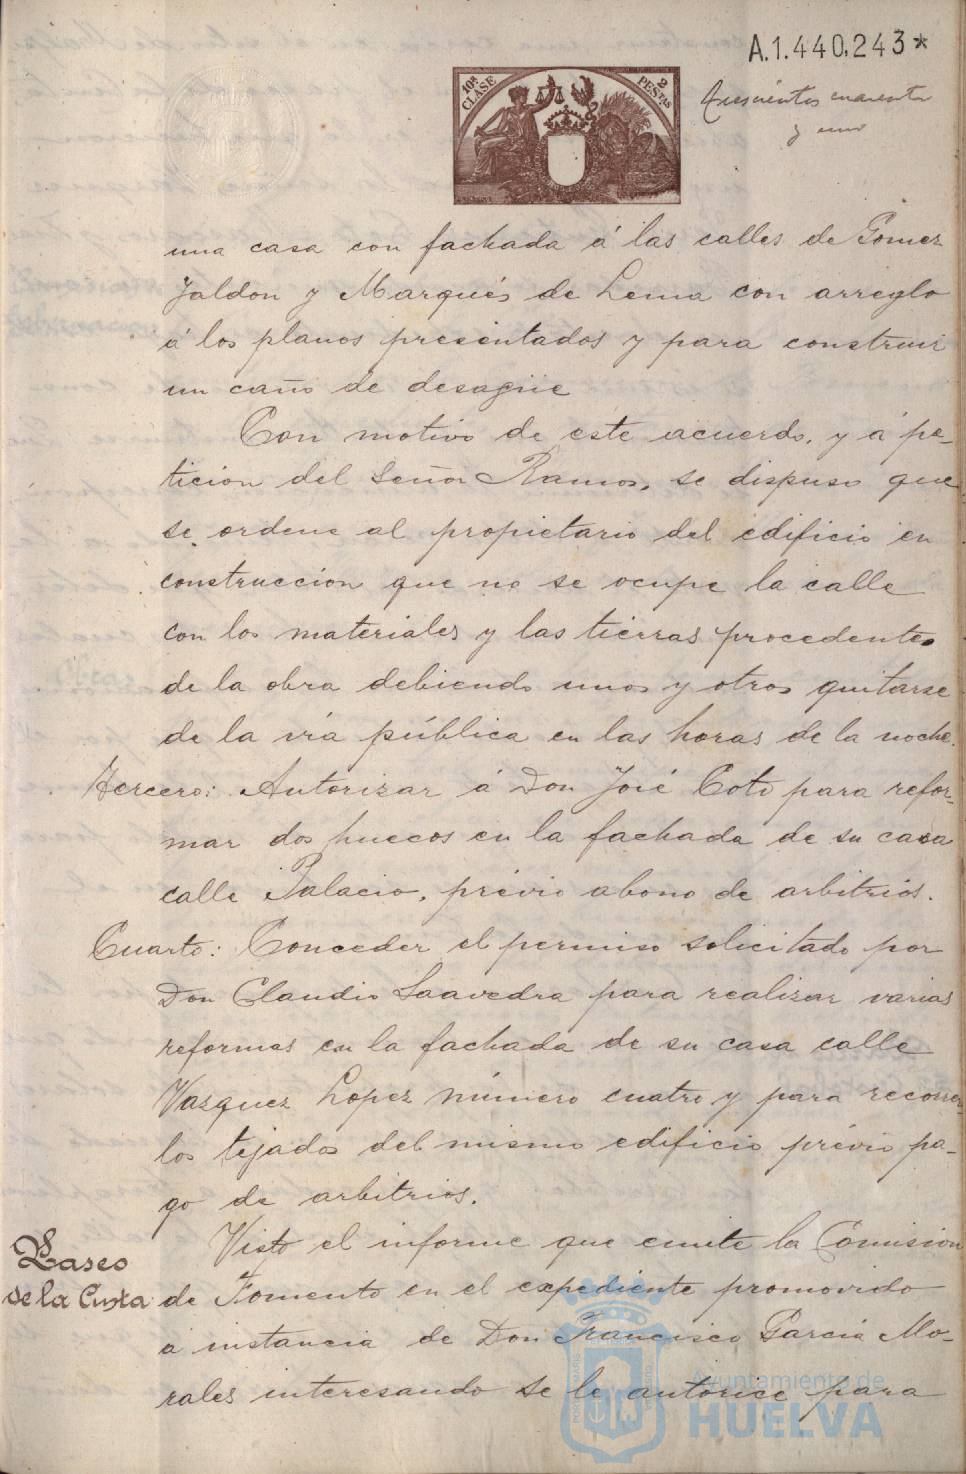 A.1.440.243*
10ª CLASE
2 PESTAS
Trescientos cuarenta
y uno
una casa con fachada á las calles de Gomez
Jaldon y Marqués de Lema con arreglo
á los planos presentados y para construir
un caño de desagüe
Con motivo de este acuerdo, y á pe-
ticion del Señor Ramos, se dispuso que
se ordene al propietario del edificio en
construccion que no se ocupe la calle
con los materiales y las tierras procedentes
de la obra debiendo unos y otros quitarse
de la vía pública en las horas de la noche.
Tercero: Autorizar á Don José Coto para refor-
mar dos huecos en la fachada de su casa
calle Palacio, prévio abono de arbitrios.
Cuarto: Conceder el permiso solicitado por
Don Claudio Saavedra para realizar varias
reformas en la fachada de su casa calle
Vazquez Lopez número cuatro y para recorrer
los tejados del mismo edificio prévio pa-
go de arbitrios.
Visto el informe que emite la Comision
Paseo
de la Cinta
de Fomento en el expediente promovido
a instancia de Don Francisco Garcia Mo-
rales interesando se le autorice para
Ayuntamiento de
HUELVA